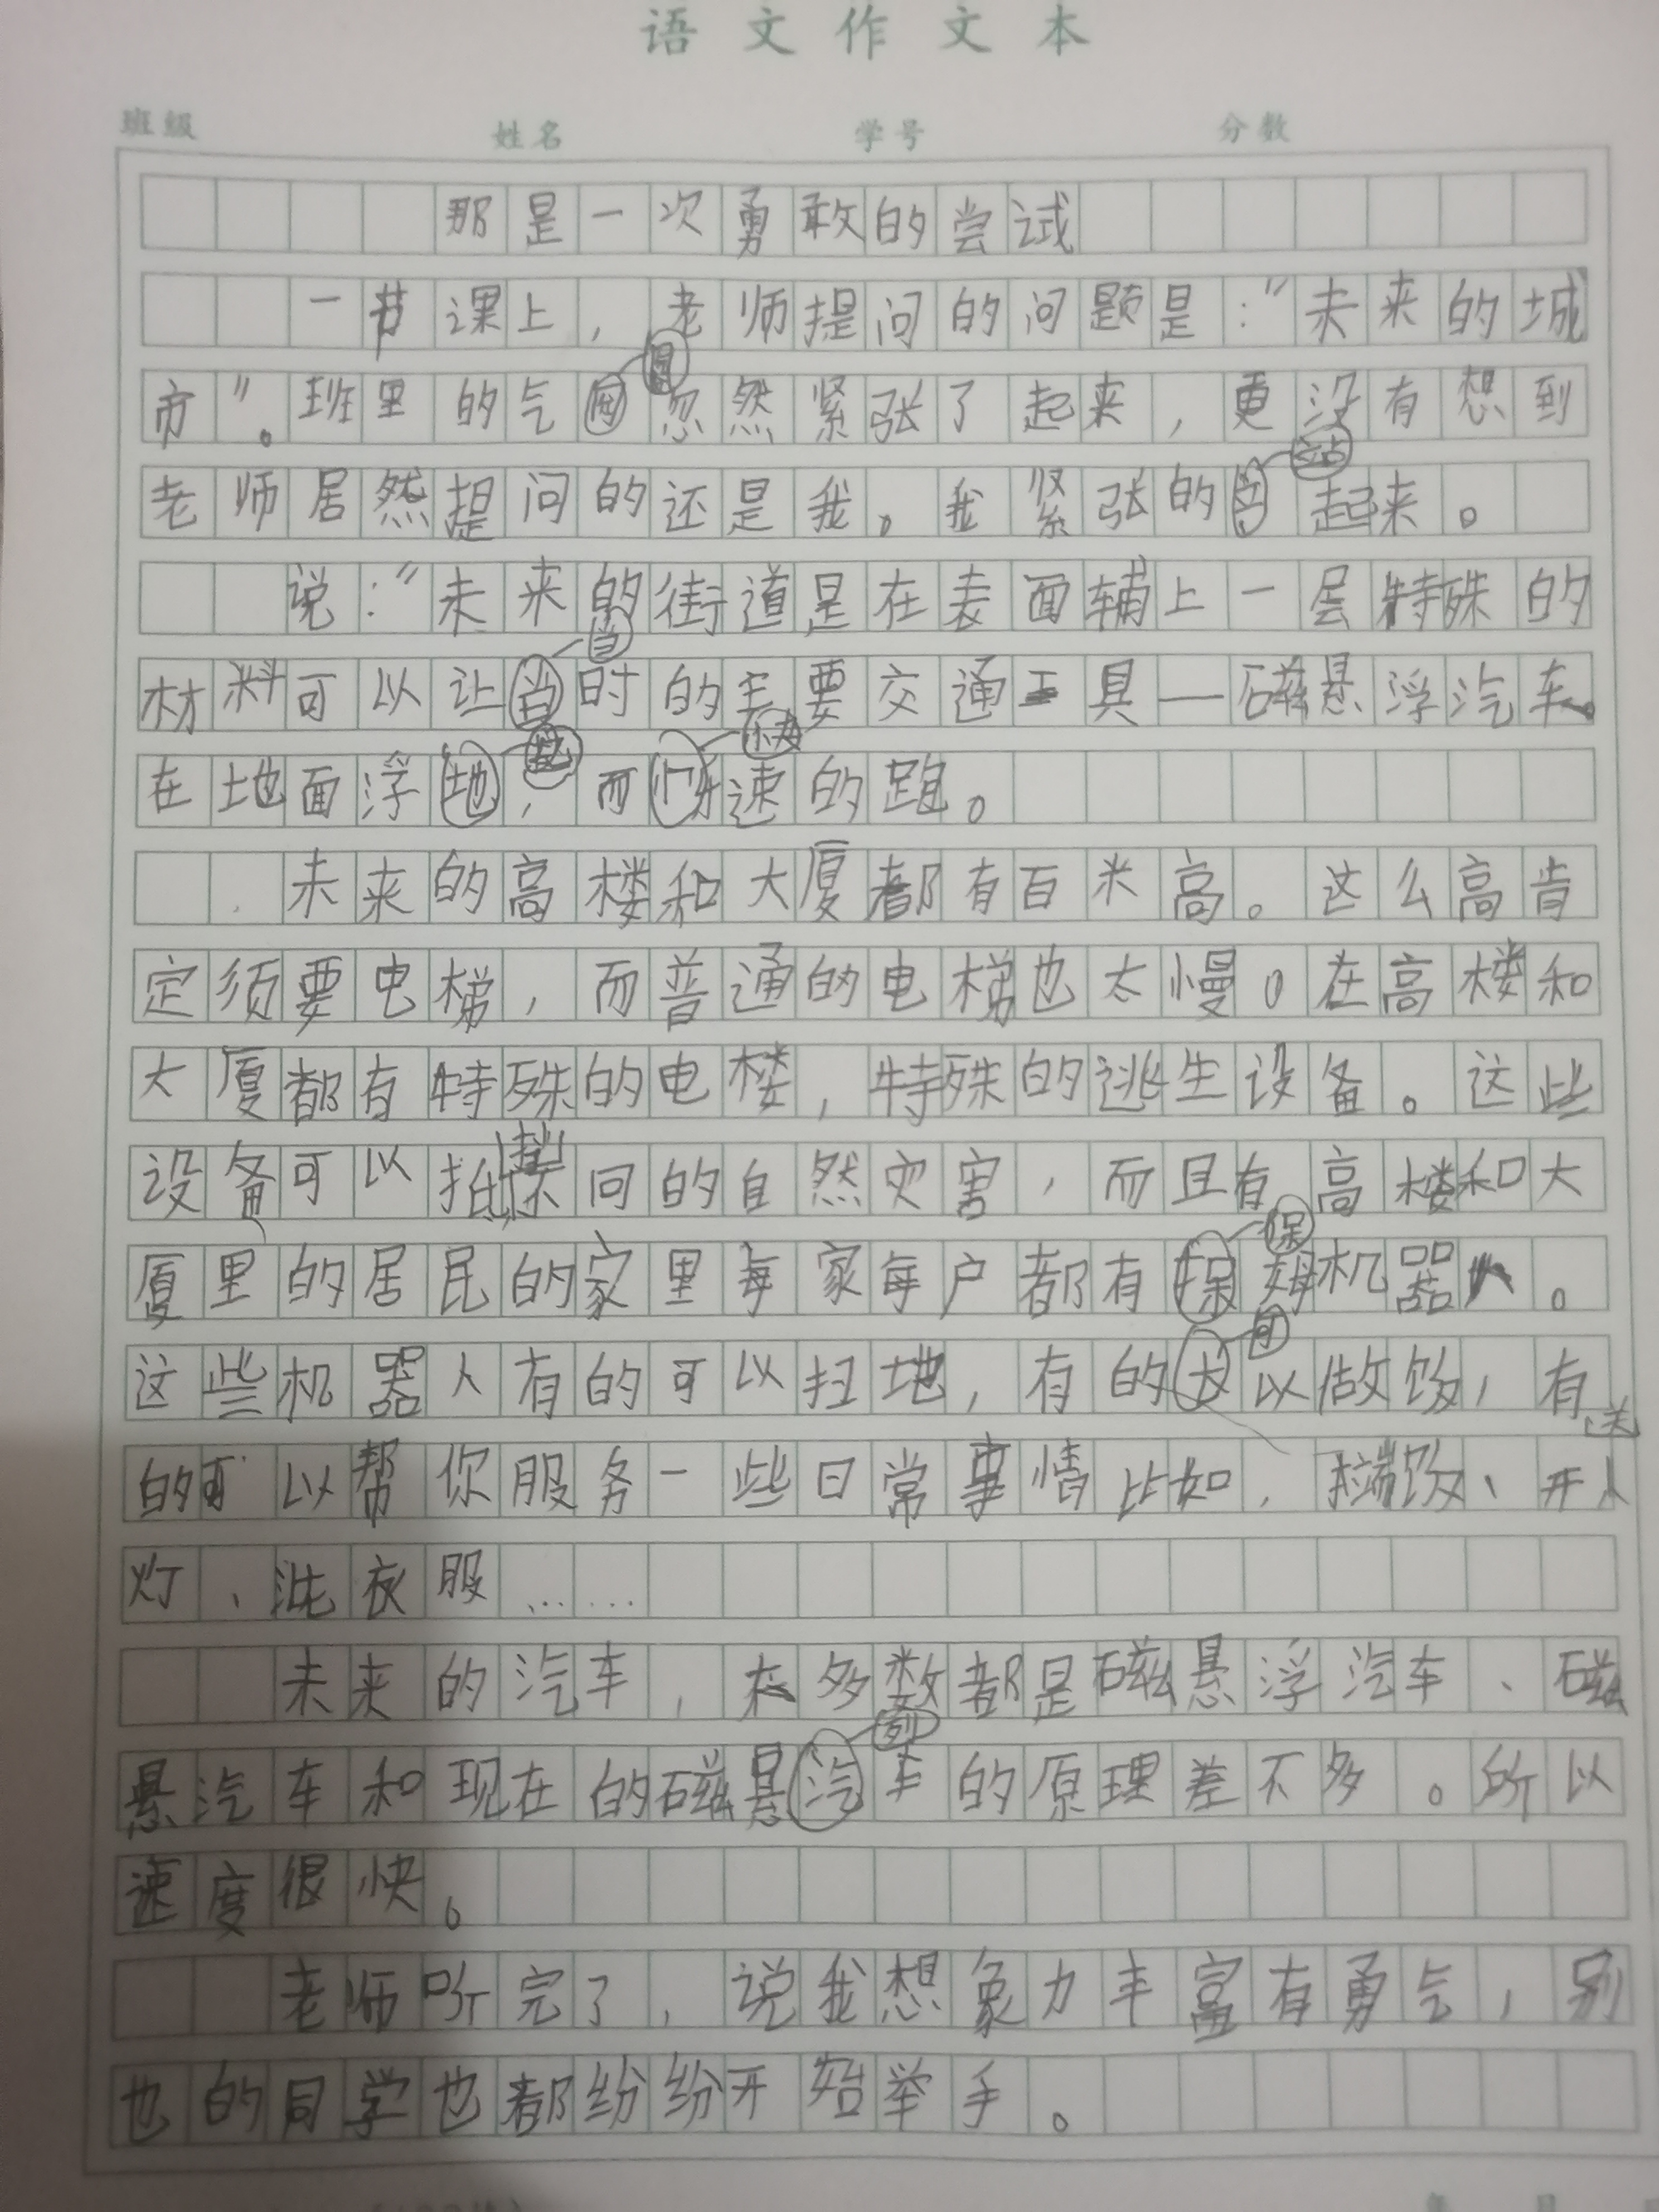 语文作文本
班级 姓名 学号 分数
那是一次勇敢的尝试
一节课上，老师提问的问题是：“未来的城
市”。班里的气氛忽然紧张了起来，更没有想到
老师居然提问的还是我。我紧张的站起来。
说：“未来的街道是在表面辅上一层特殊的
材料可以让当时的主要交通工具—磁悬浮汽车。
在地面浮起，而快速的跑。
未来的高楼和大厦都有百米高。这么高肯
定须要电梯，而普通的电梯也太慢。在高楼和
大厦都有特殊的电楼，特殊的逃生设备。这些
设备可以抵挡不同的自然灾害，而且有高楼和大
厦里的居民的家里每家每户都有保姆机器人。
这些机器人有的可以扫地，有的可以做饭，有
的可以帮你服务一些日常事情比如，端饭、开关
灯、洗衣服……
未来的汽车，大多数都是磁悬浮汽车、磁
悬汽车和现在的磁悬列车的原理差不多。所以
速度很快。
老师听完了，说我想象力丰富有勇气，别
也的同学也都纷纷开始举手。
年 月